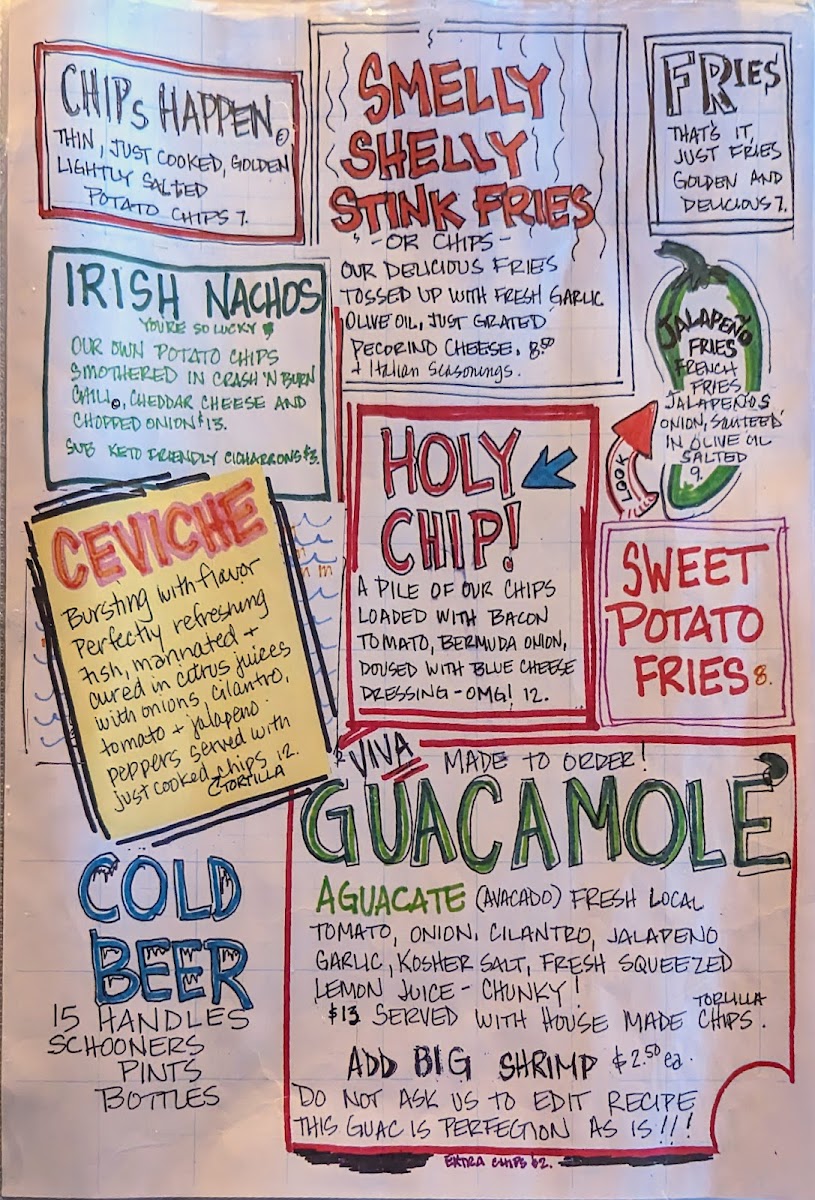 CHIPS HAPPEN
THIN, JUST COOKED, GOLDEN
LIGHTLY SALTED
POTATO CHIPS 7.
SMELLY
SHELLY
STINK FRIES
- OR CHIPS -
OUR DELICIOUS FRIES
TOSSED UP WITH FRESH GARLIC
OLIVE OIL, JUST GRATED
PECORINO CHEESE. 8.50
+ Italian Seasonings.
FRIES
THAT'S IT,
JUST FRIES
GOLDEN AND
DELICIOUS 7.
IRISH NACHOS
YOU'RE SO LUCKY
OUR OWN POTATO CHIPS
SMOTHERED IN CRASH 'N BURN
CHILI, CHEDDAR CHEESE AND
CHOPPED ONION $13.
SUB KETO FRIENDLY CICHARRONS $3.
JALAPEÑO
FRIES
FRENCH
FRIES
JALAPEÑOS
ONION, SAUTEED
IN OLIVE OIL
SALTED
9.
LOOK
HOLY
CHIP!
A PILE OF OUR CHIPS
LOADED WITH BACON
TOMATO, BERMUDA ONION,
DOUSED WITH BLUE CHEESE
DRESSING - OMG! 12.
SWEET
POTATO
FRIES 8.
CEVICHE
Bursting with flavor
Perfectly refreshing
fish, marinated +
cured in citrus juices
with onions, cilantro,
tomato + jalapeno
peppers served with
just cooked chips 12.
TORTILLA
VIVA MADE TO ORDER!
GUACAMOLE
AGUACATE (AVACADO) FRESH LOCAL
TOMATO, ONION, CILANTRO, JALAPENO
GARLIC, KOSHER SALT, FRESH SQUEEZED
LEMON JUICE - CHUNKY!
TORLILLA
$13 SERVED WITH HOUSE MADE CHIPS.
ADD BIG SHRIMP $2.50 ea.
DO NOT ASK US TO EDIT RECIPE
THIS GUAC IS PERFECTION AS IS!!!
EXTRA CHIPS $2.
COLD
BEER
15 HANDLES
SCHOONERS
PINTS
BOTTLES